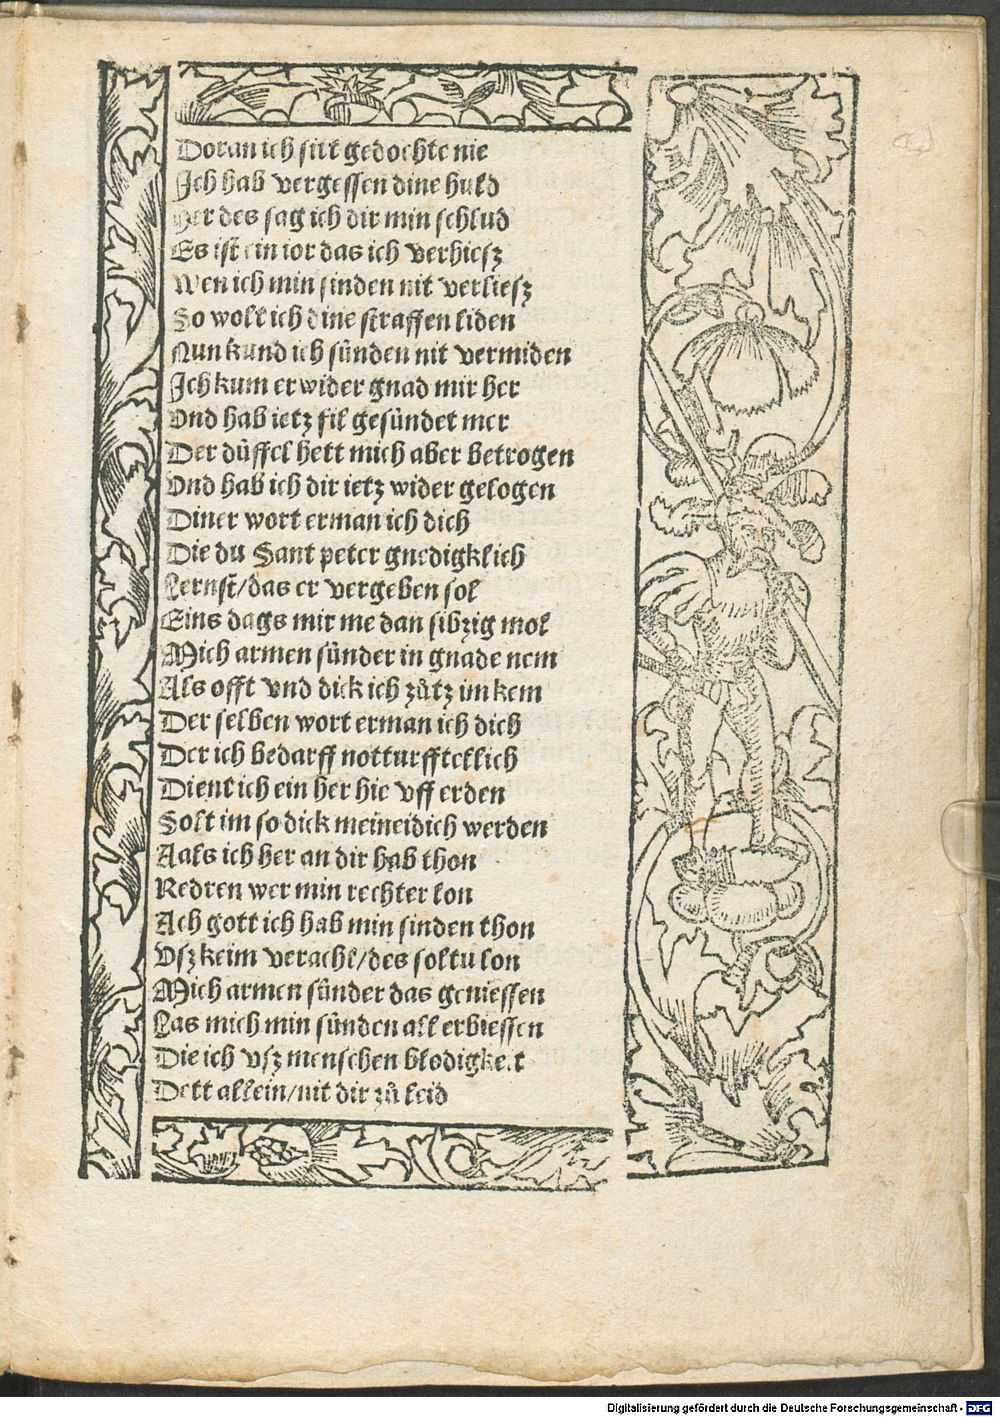 Doran ich sirt gedochte nie
Ich hab vergessen dine huld
Her des sag ich dir min schlud
Es ist ein ior das ich verhiesz
Wen ich min sinden nit verliesz
So wolt ich dine straffen liden
Nun kund ich sünden nit vermiden
Ich kum er wider gnad mir her
Vnd hab ietz fil gesündet mer
Der düffel hett mich aber betrogen
Vnd hab ich dir ietz wider gelogen
Diner wort erman ich dich
Die du Sant peter gnedigklich
Lernst/das er vergeben sol
Eins dags mir me dan sibzig mol
Mich armen sünder in gnade nem
Als offt vnd dick ich zůtz im kem
Der selben wort erman ich dich
Der ich bedarff notturfftcklich
Dient ich ein her hie vff erden
Solt im so dick meineidich werden
Aals ich her an dir hab thon
Redren wer min rechter lon
Ach gott ich hab min sinden thon
Vsz keim veracht/des soltu lon
Mich armen sünder das geniessen
Las mich min sünden all erbiessen
Die ich vsz menschen blodigkeit
Dett allein/nit dir zů leid
Digitalisierung gefördert durch die Deutsche Forschungsgemeinschaft - DFG